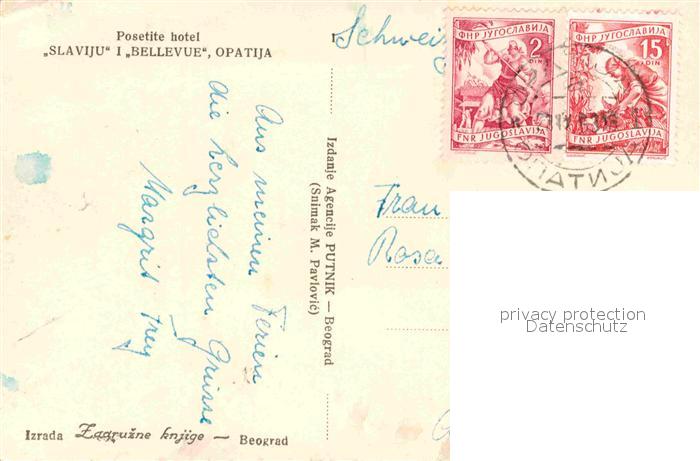 Posetite hotel
„SLAVIJU“ I „BELLEVUE“, OPATIJA
Aus meinen Ferien
die herzlichsten Grüsse
Margrit Frey
Izdanje Agencije PUTNIK — Beograd
(Snimak M. Pavlović)
Izrada Zadružne knjige — Beograd
Schweiz
ФНР ЈУГОСЛАВИЈА
2
DIN
FNR JUGOSLAVIJA
ФНР ЈУГОСЛАВИЈА
15
DIN
FNR JUGOSLAVIJA
ОПАТИЈА
Frau
Rosa
privacy protection
Datenschutz